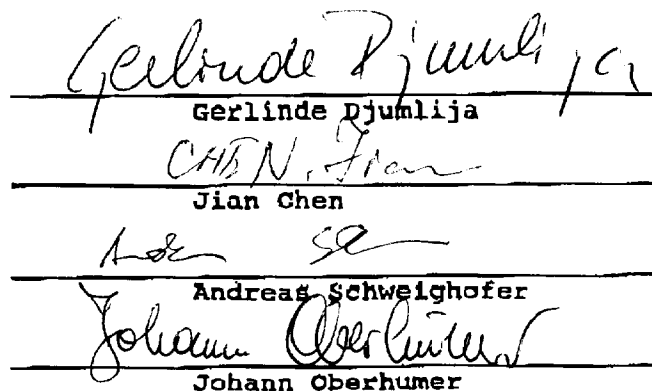 Gerlinde Djumlija
Gerlinde Djumlija
CHEN, Jian
Jian Chen
Andreas Schweighofer
Johann Oberhumer
Johann Oberhumer